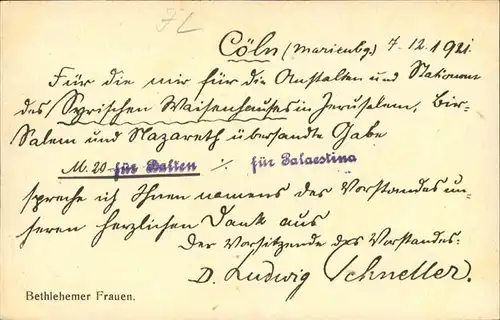 FL
Cöln (Marienbg.) 7.12.1921
Für die mir für die Anstalten und Stationen
des Syrischen Waisenhauses in Jerusalem, Bir-
Salem und Nazareth übersandte Gabe
M. 20 für ./. für Palaestina
spreche ich Ihnen namens des Vorstandes un-
seren herzlichen Dank aus
Der Vorsitzende des Vorstandes:
D. Ludwig Schneller.
Bethlehemer Frauen.